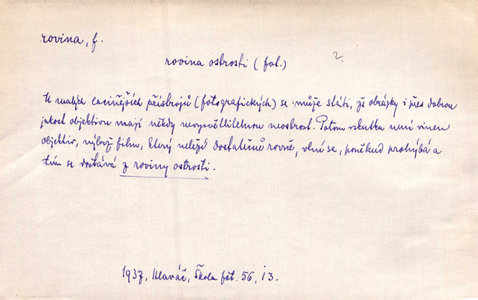 rovina, f.
rovina ostrosti (fot.) 2.
U malých levnějších přístrojů (fotografických) se může státi, že obrázky i přes dobrou
jakost objektivu mají někdy nevysvětlitelnou neostrost. Potom vskutku není vinen
objektiv, nýbrž film, který neleží dostatečně rovně, vlní se, poněkud prohýbá a
tím se dostává z roviny ostrosti.
1937, Hlaváč, Škola fot. 56, 13.